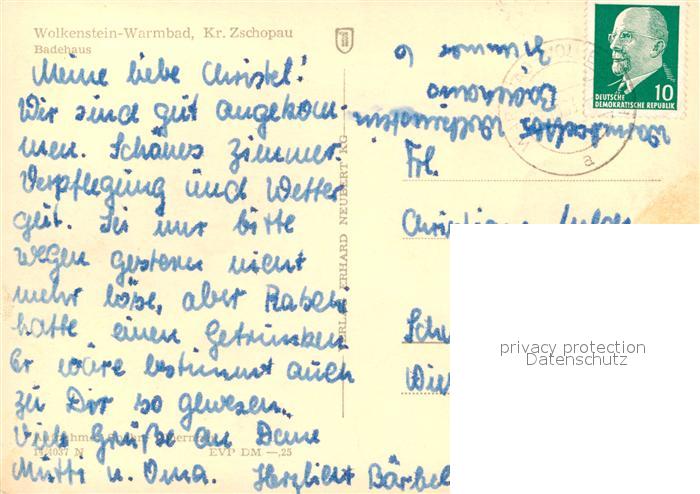 Wolkenstein-Warmbad, Kr. Zschopau
Badehaus
Meine liebe Christel!
Wir sind gut angekom-
men. Schönes Zimmer.
Verpflegung und Wetter
gut. Sei nur bitte
wegen gestern nicht
mehr böse, aber
hatte einen getrunken
Er wäre bestimmt auch
zu Dir so gewesen.
Viele Grüße an Deine
Mutti u. Oma. Herzlichst Bärbel
14/4037 N EVP DM —,25
ERHARD NEUBERT KG
DEUTSCHE
DEMOKRATISCHE REPUBLIK
10
a
Wolkenstein
Badehaus
Zimmer 6
Frl.
privacy protection
Datenschutz